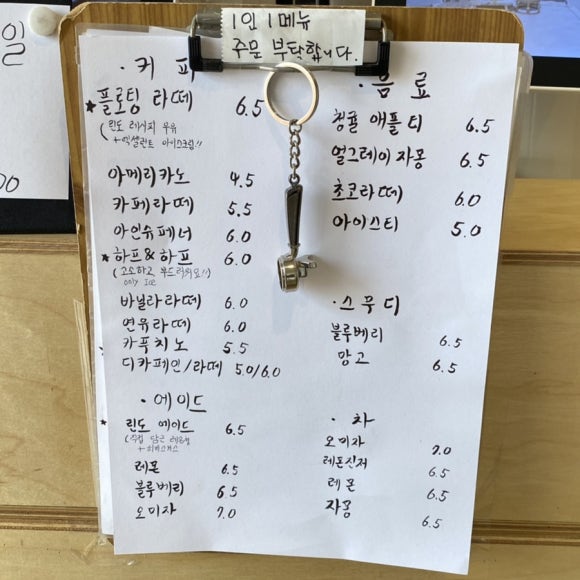 1인 1메뉴
주문 부탁합니다.
일
00
· 커피
★플로팅 라떼 6.5
(린도 레시피 우유
+엑셀런트 아이스크림!!
아메리카노 4.5
카페라떼 5.5
아인슈페너 6.0
★하프&하프 6.0
(고소하고 부드러워요!!)
only Ice
바닐라라떼 6.0
연유라떼 6.0
카푸치노 5.5
디카페인/라떼 5.0/6.0
· 에이드
린도 에이드 6.5
(수집 담근 레몬청
레몬 6.5
블루베리 6.5
오미자 7.0
· 음료
청귤 애플티 6.5
얼그레이자몽 6.5
초코라떼 6.0
아이스티 5.0
· 스무디
블루베리 6.5
망고 6.5
· 차
오미자 7.0
레몬진저 6.5
레몬 6.5
자몽 6.5